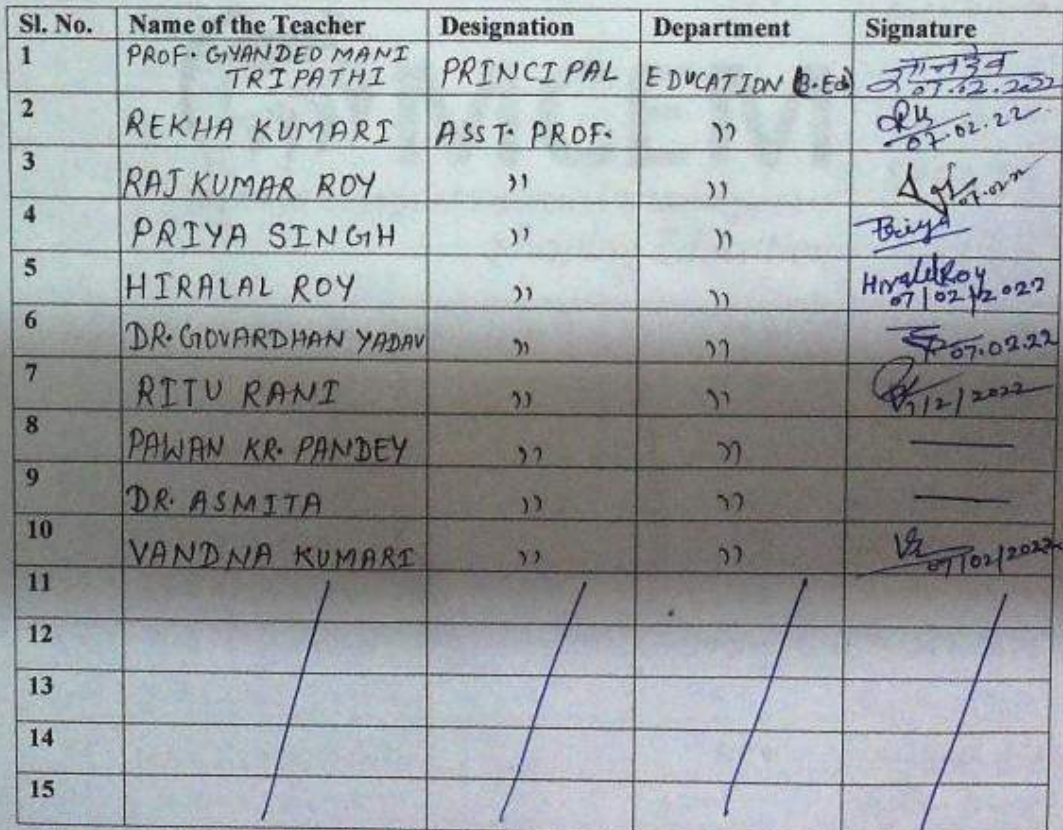 Sl. No. Name of the Teacher Designation Department Signature
1 PROF. GYANDEO MANI TRIPATHI PRINCIPAL EDUCATION (B.Ed) 07.02.2022
2 REKHA KUMARI ASST. PROF. ,, 07.02.22
3 RAJ KUMAR ROY ,, ,,
4 PRIYA SINGH ,, ,, Priya
5 HIRALAL ROY ,, ,, Hiralal Roy 07/02/2022
6 DR. GOVARDHAN YADAV ,, ,, 07.02.22
7 RITU RANI ,, ,, 7/2/2022
8 PAWAN KR. PANDEY ,, ,, —
9 DR. ASMITA ,, ,, —
10 VANDNA KUMARI ,, ,, 07/02/2022
11
12
13
14
15